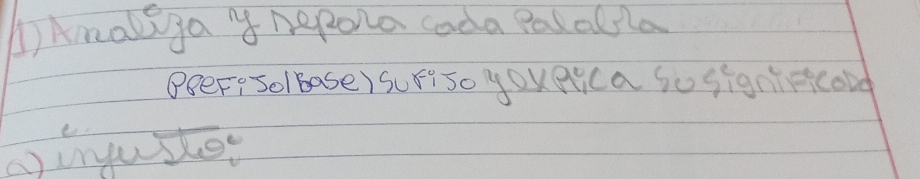 1) Analiza y separa cada palabra
Prefijo/Base/Sufijo y explica su significado
a) injusto: